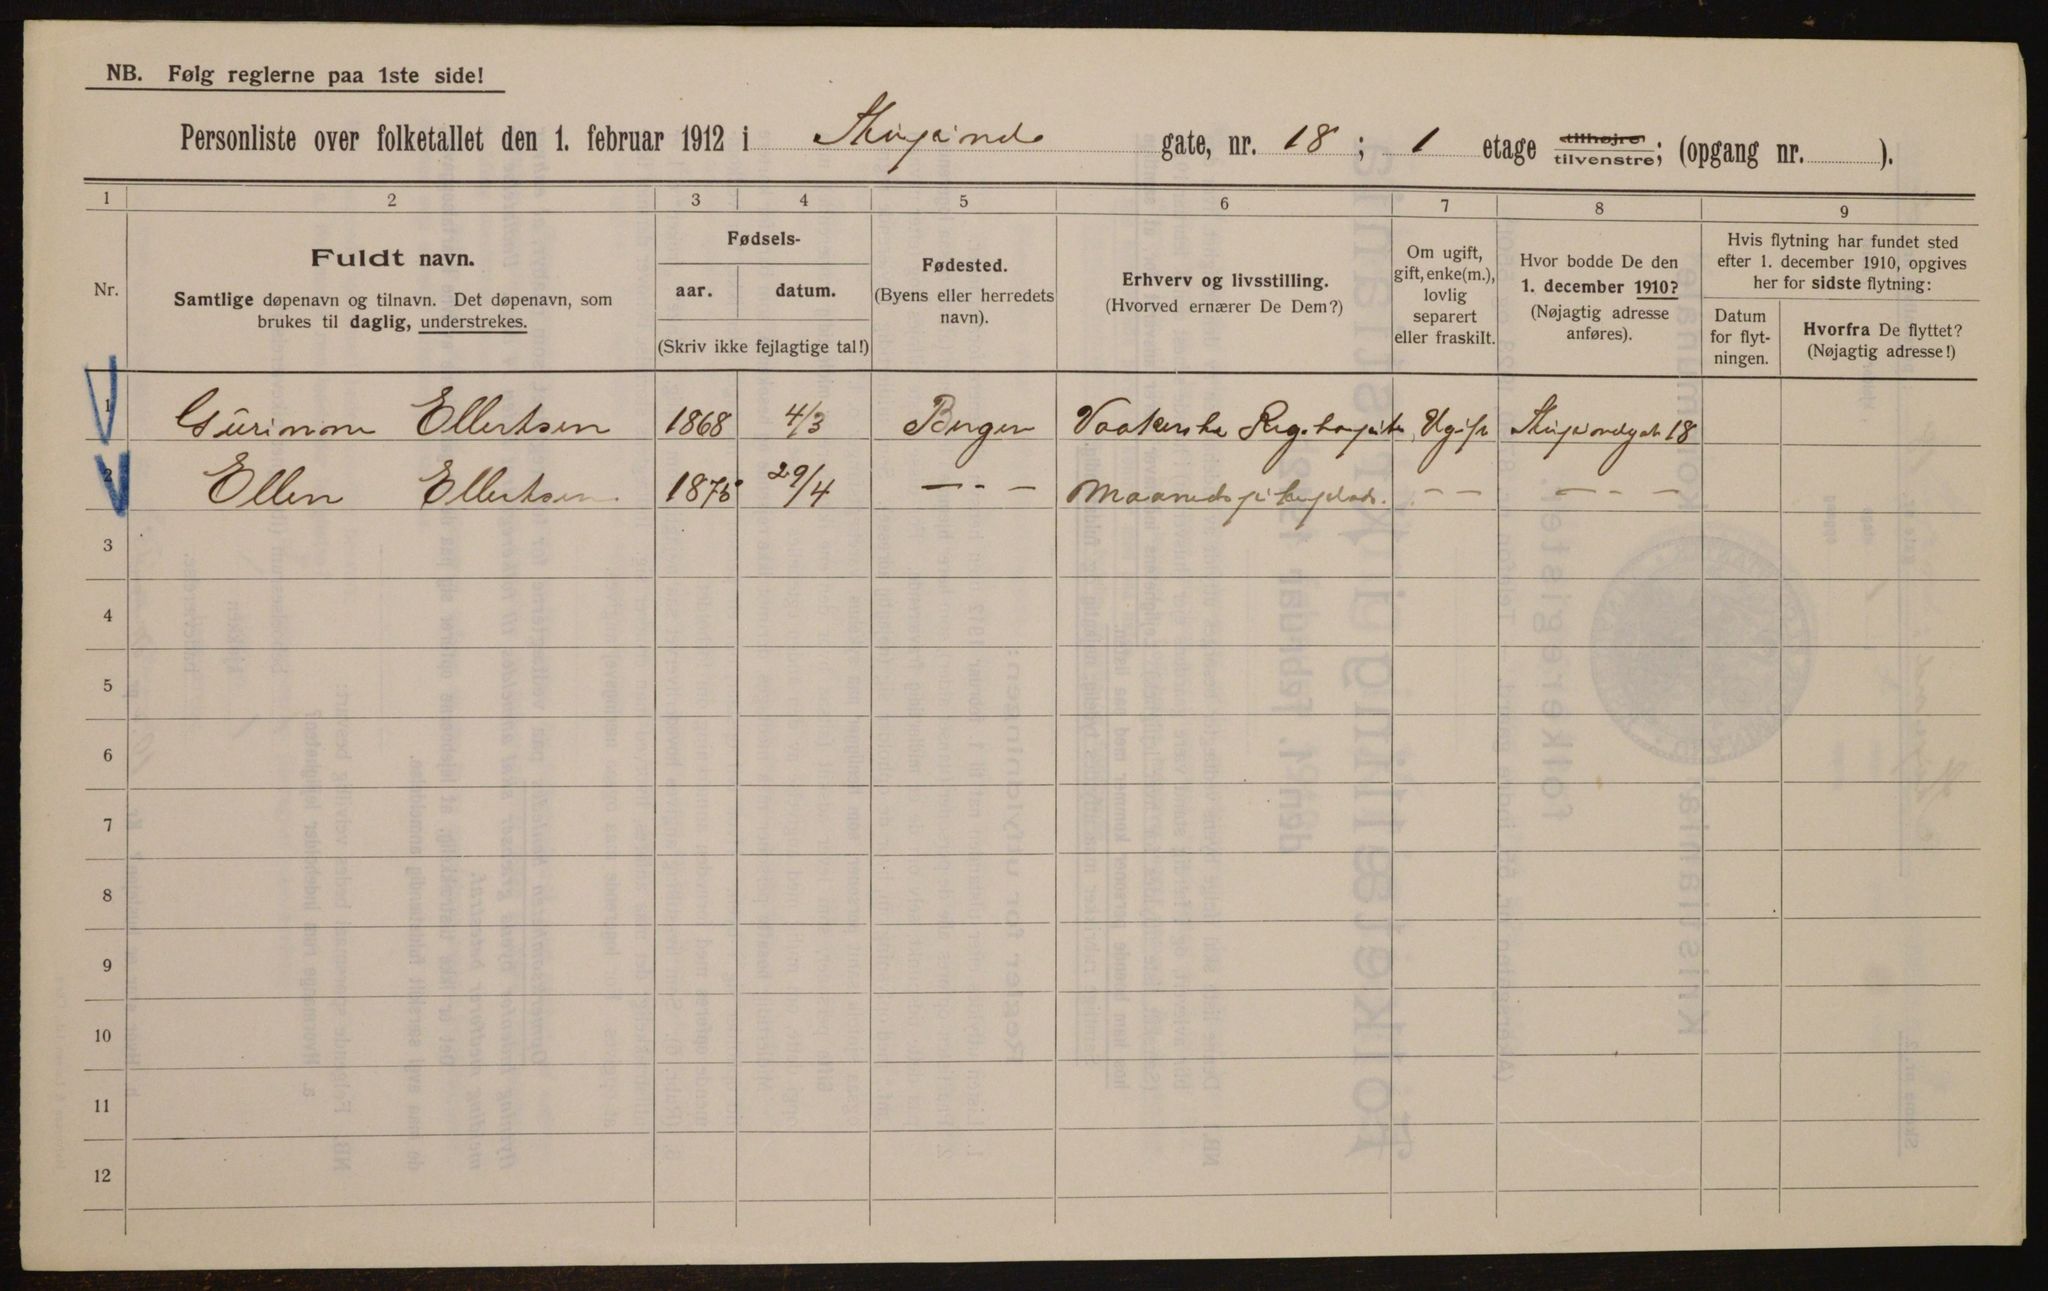 NB. Følg reglerne paa 1ste side!
Personliste over folketallet den 1. februar 1912 i gate, nr. 18 ; 1 etage tilhøjre tilvenstre; (opgang nr. ).
1 2 3 4 5 6 7 8 9
Nr.
Fuldt navn.
Samtlige døpenavn og tilnavn. Det døpenavn, som
brukes til daglig, understrekes.
Fødsels-
aar. datum.
(Skriv ikke fejlagtige tal!)
Fødested.
(Byens eller herredets
navn).
Erhverv og livsstilling.
(Hvorved ernærer De Dem?)
Om ugift,
gift, enke(m.),
lovlig
separert
eller fraskilt.
Hvor bodde De den
1. december 1910?
(Nøjagtig adresse
anføres).
Hvis flytning har fundet sted
efter 1. december 1910, opgives
her for sidste flytning:
Datum
for flyt-
ningen.
Hvorfra De flyttet?
(Nøjagtig adresse!)
1 Ellertsen 1868 4/3 Bergen Ugift 18
2 Ellen Ellertsen 1875 29/4 — - — — — — - —
3
4
5
6
7
8
9
10
11
12